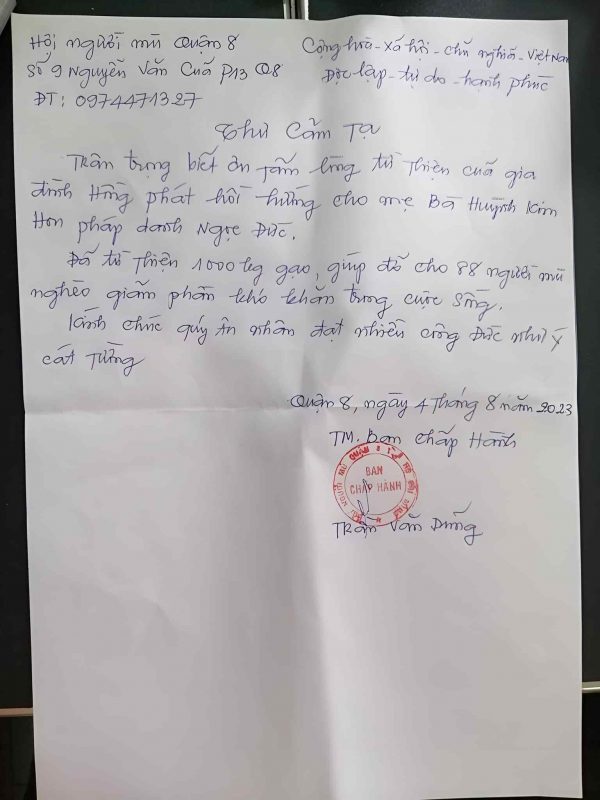 Hội người mù Quận 8
Số 9 Nguyễn Văn Cuả P13 Q8
ĐT: 0974471327
Cộng hòa - Xã hội - chủ nghiã - Việt Nam
Độc lập - tự do - hạnh phúc
Thư Cảm Tạ
Trân trọng biết ơn tấm lòng từ thiện cuả gia
đình Hồng phát hồi hướng cho mẹ Bà Huỳnh Kim
Hon pháp danh Ngọc Đức.
Đã từ thiện 1000 kg gạo, giúp đỡ cho 88 người mù
nghèo giảm phần khó khăn trong cuộc sống.
Kính chúc quý ân nhân đạt nhiều công Đức như ý
cát tường
Quận 8, ngày 4 tháng 8 năm 2023
TM. Ban Chấp Hành
BAN
CHẤP HÀNH
NGƯỜI MÙ QUẬN 8
Trần Văn Dũng